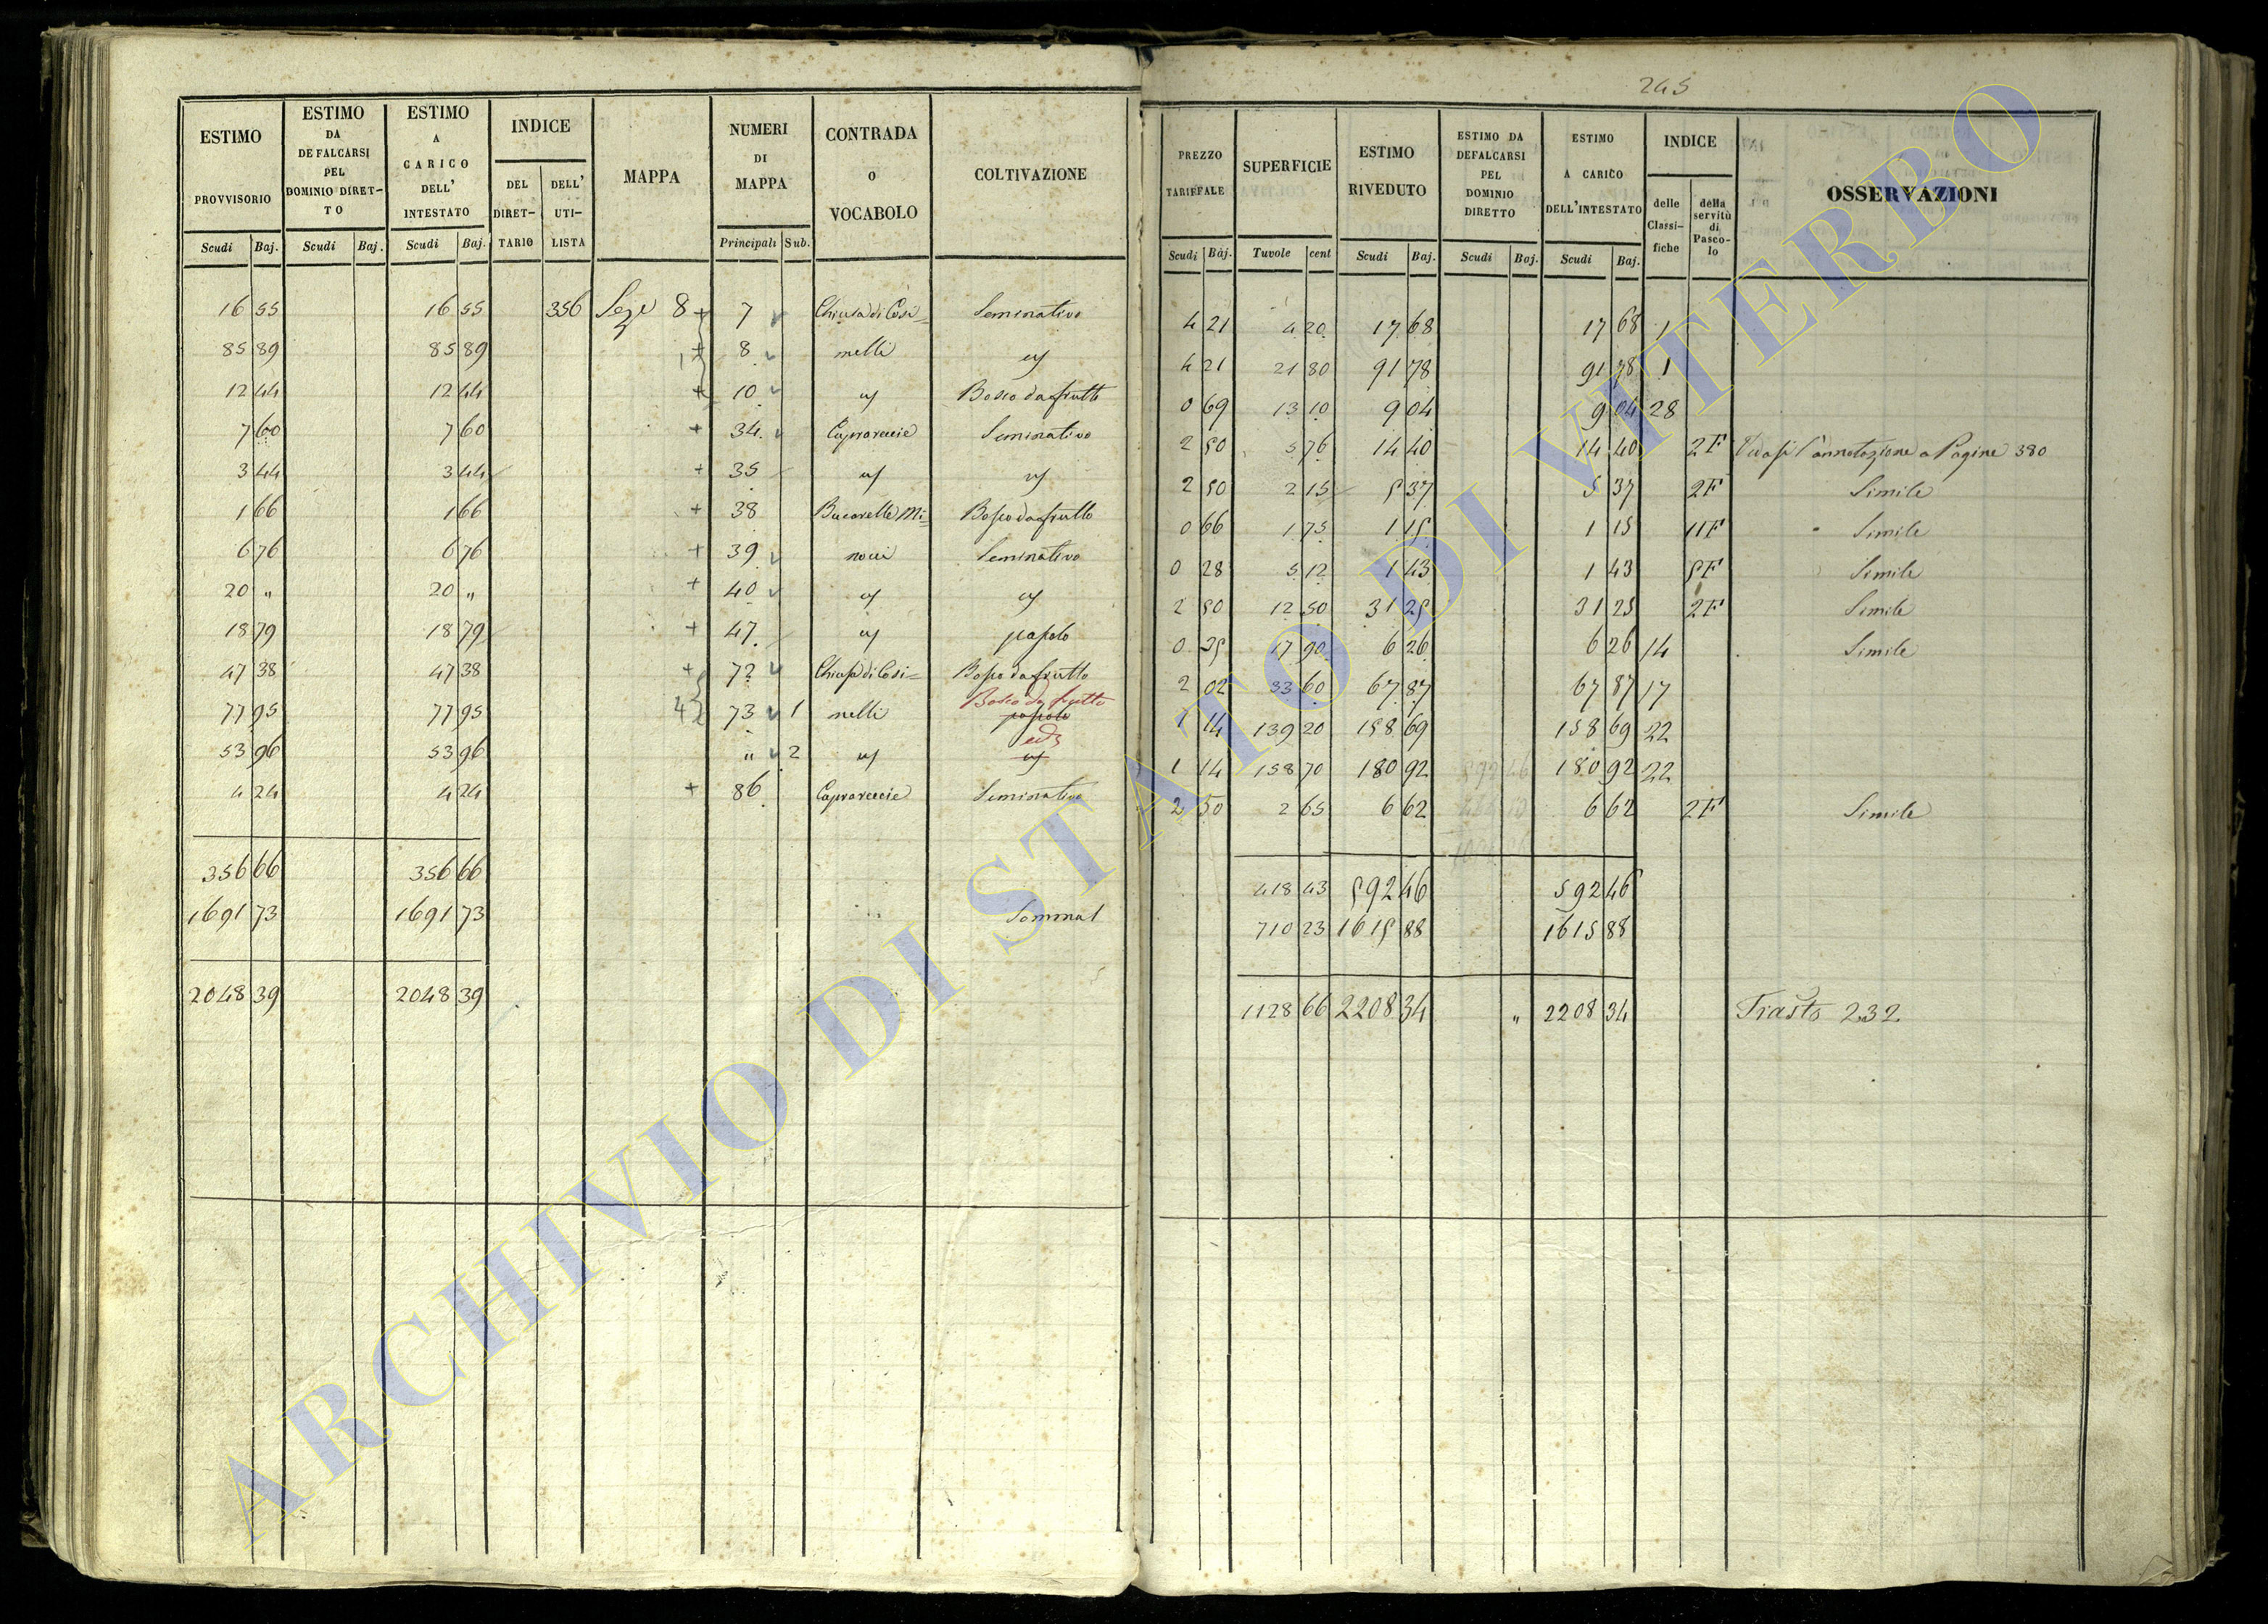 245
ESTIMO PROVVISORIO Scudi Baj.
ESTIMO DA DEFALCARSI PEL DOMINIO DIRETTO Scudi Baj.
ESTIMO A CARICO DELL' INTESTATO Scudi Baj.
INDICE DEL DIRETTARIO DELL' UTILISTA
MAPPA
NUMERI DI MAPPA Principali Sub.
CONTRADA O VOCABOLO
COLTIVAZIONE
PREZZO TARIFFALE Scudi Baj.
SUPERFICIE Tavole cent
ESTIMO RIVEDUTO Scudi Baj.
ESTIMO DA DEFALCARSI PEL DOMINIO DIRETTO Scudi Baj.
ESTIMO A CARICO DELL'INTESTATO Scudi Baj.
INDICE delle Classifiche della servitù di Pascolo
OSSERVAZIONI
16 55 16 55 356 Seze 8 + 7 Chiusa di Cosi= Seminativo 4 21 4 20 17 68 17 68 1
85 89 85 89 + 8 melli 4 21 21 80 91 78 91 78 1
12 44 12 44 + 10 Bosco da frutto 0 69 13 10 9 04 9 04 28
7 60 7 60 + 34 Caprareccie Seminativo 2 50 5 76 14 40 14 40 2F Vedasi l'annotazione a Pagine 380
3 44 3 44 + 35 2 50 2 15 5 37 5 37 2F Simile
1 66 1 66 + 38 Bucarelle Mi= Bosco da frutto 0 66 1 75 1 15 1 15 11F Simile
6 76 6 76 + 39 nocci Seminativo 0 28 5 12 1 43 1 43 5F Simile
20 " 20 " + 40 2 50 12 50 31 25 31 25 2F Simile
18 79 18 79 + 47 pascolo 0 35 17 90 6 26 6 26 14 Simile
47 38 47 38 + 72 Chiusa di Cosi= Bosco da frutto 2 02 33 60 67 87 67 87 17
Bosco da frutto
77 95 77 95 4 73 1 melli pascolo 1 14 139 20 158 69 158 69 22
53 96 53 96 " 2 1 14 158 70 180 92 180 92 22
4 24 4 24 + 86 Caprareccie Seminativo 2 50 2 65 6 62 6 62 2F Simile
356 66 356 66 418 43 592 46 592 46
1691 73 1691 73 Somma l 710 23 1615 88 1615 88
2048 39 2048 39 1128 66 2208 34 " 2208 34 Trasto 232
ARCHIVIO DI STATO DI VITERBO